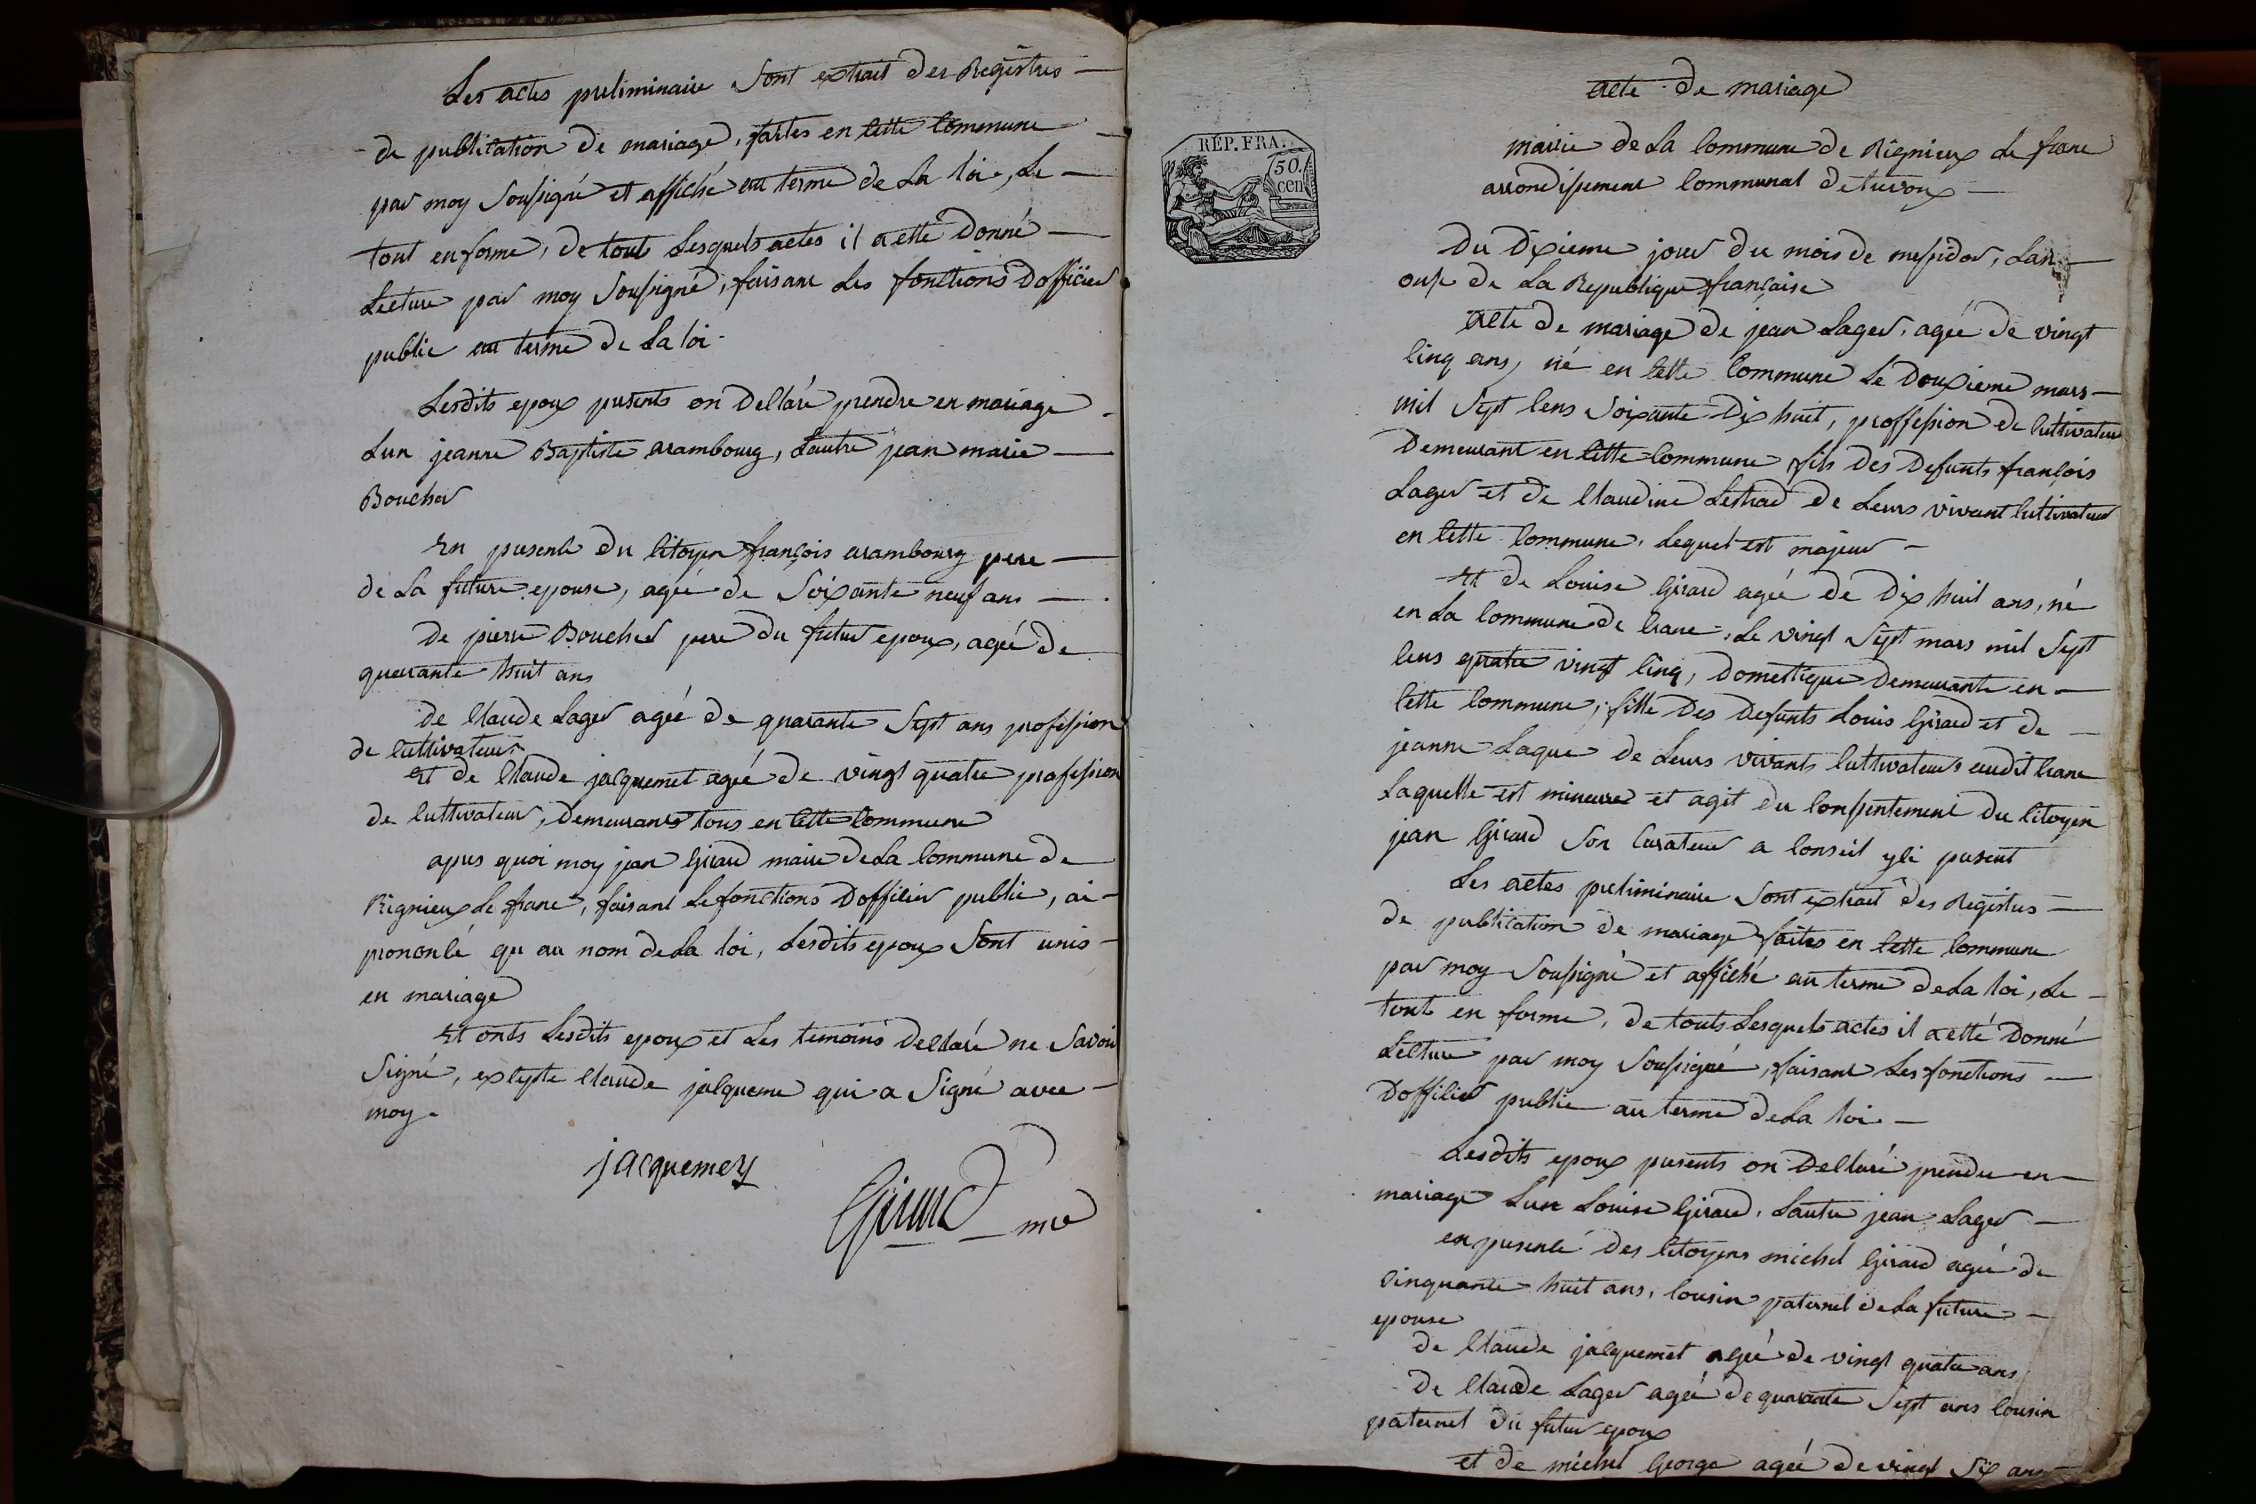 Les actes preliminaire Sont extrait des Registres —
de publication de mariage, faites en cette commune —
par moy Soussigné et affiché au terme de La loi, Le —
tout en forme, de touts Lesquels actes il a etté Donné —
Lecture par moy Soussigné, faisant Les fonctions D'officier
public au terme de La loi.
Lesdits epoux presents on Declaré prendre en mariage
Lun jeanne Baptiste arambourg, Lautre jean marie —
Boucher
En presence du citoyen françois arambourg pere —
de La future epouse, agée de Soixante neuf ans —
De pierre Boucher pere du futur epoux, agée de
quarante huit ans
de claude Lager agée de quarante Sept ans profession
de cultivateur
et de claude jacquemet agée de vingt quatre profession
de cultivateur, Demeurants tous en cette commune
apres quoi moy jean Girard maire de La commune de
Rignieux Le franc, faisant Le fonctions D'officier public, ai —
prononcé qu au nom de La loi, Lesdits epoux Sont unis —
en mariage
Et onts Lesdits epoux et Les temoins Declaré ne Savoir
Signé, excepte claude jacqueme qui a Signé avec —
moy.
jacquemet
Girard mre
RÉP. FRA.
50.
cen
acte de mariage
mairie de La commune de Rignieux Le franc
arrondissement communal de trevoux —
Du Dixieme jour du mois de messidor, Lan —
onze de La Republique française
acte de mariage de jean Lager, agée de vingt
cinq ans, né en cette commune Le Douxieme mars —
mil Sept cens Soixante Dix huit, proffession de cultivateur
Demeurant en cette commune, fils des Defunts françois
Lager et de claudine Lestrad de Leurs vivant cultivateur
en cette commune, Lequel est majeur —
et de Louise Girard agée de Dix huit ans, né
en La commune de crane, Le vingt Sept mars mil Sept
cens quatre vingt cinq, Domestique Demeurante en —
cette commune, fille des Defunts Louis Girard et de —
jeanne Laque de Leurs vivants cultivateurs audit crane
Laquelle est mineure et agit du consentement du citoyen
jean Girard Son curateur a conseil yci present
Les actes preliminaire Sont extrait des Registres —
de publication de mariage faites en cette commune
par moy Soussigné et affiché au terme de La loi, Le —
tout en forme, de touts Lesquels actes il a etté Donné
Lecture par moy Soussigné, faisant Les fonctions —
D'officier public au terme de La loi —
Lesdits epoux presents on Declaré prendre en —
mariage Lun Louise Girard, Lautre jean Lager —
en presence des citoyens michel Girard agée de
cinquante huit ans, cousin paternel de La future —
epouse
de claude jacquemet agée de vingt quatre ans
De claude Lager agée de quarante Sept ans cousin
paternel du futur epoux
et de michel George agée de vingt Six ans